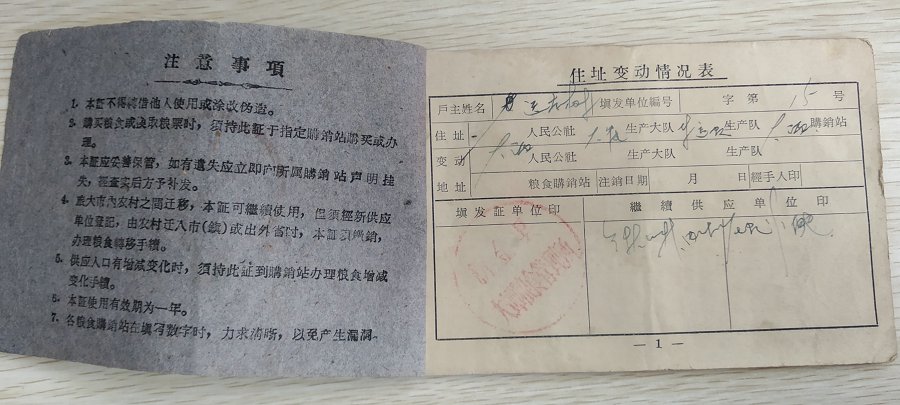 注意事項
1. 本証不得轉借他人使用或涂改伪造。
2. 購买粮食或換取粮票时，須持此証于指定購銷站購买或办
理。
3. 本証应妥善保管，如有遺失应立即向所屬購銷站声明挂
失，經查实后方予补发。
4. 旅大市内农村之間迁移，本証可繼續使用，但須經新供应
单位登記，由农村迁入市(鎮)或出外省时，本証須繳銷，
办理粮食轉移手續。
5. 供应人口有增减变化时，須持此証到購銷站办理粮食增减
变化手續。
6. 本証使用有效期为一年。
7. 各粮食購銷站在填写数字时，力求清晰，以免产生漏洞。
住址变动情况表
戶主姓名 填发单位編号 字第 15 号
住址 人民公社 生产大队 生产队 購銷站
变动 人民公社 生产大队 生产队
地址 粮食購銷站 注銷日期 月 日 經手人印
填发証单位印 繼續供应单位印
— 1 —